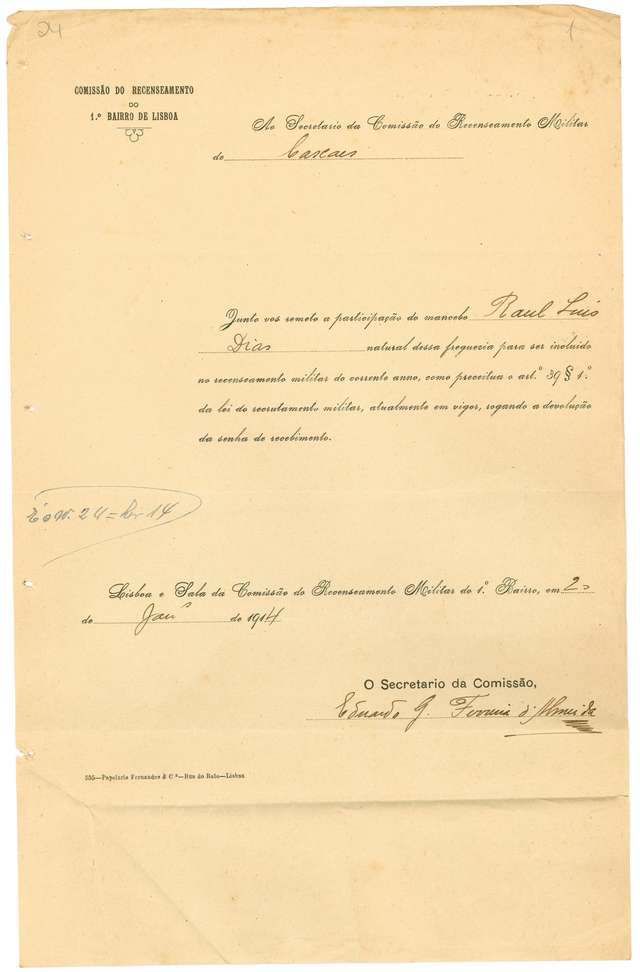 24
1
COMISSÃO DO RECENSEAMENTO
DO
1.º BAIRRO DE LISBOA
Ao Secretario da Comissão do Recenseamento Militar
de Cascaes
Junto vos remeto a participação do mancebo Raul Luis
Dias natural dessa freguezia para ser incluido
no recenseamento militar do corrente anno, como preceitua o art.º 39 § 1.º
da lei do recrutamento militar, atualmente em vigor, rogando a devolução
da senha de recebimento.
24 = 14
Lisboa e Sala da Comissão do Recenseamento Militar do 1.º Bairro, em 2
de Janº de 1914
O Secretario da Comissão,
Eduardo G. Ferreira d'Almeida
555—Papelaria Fernandes & C.ª—Rua do Rato—Lisboa